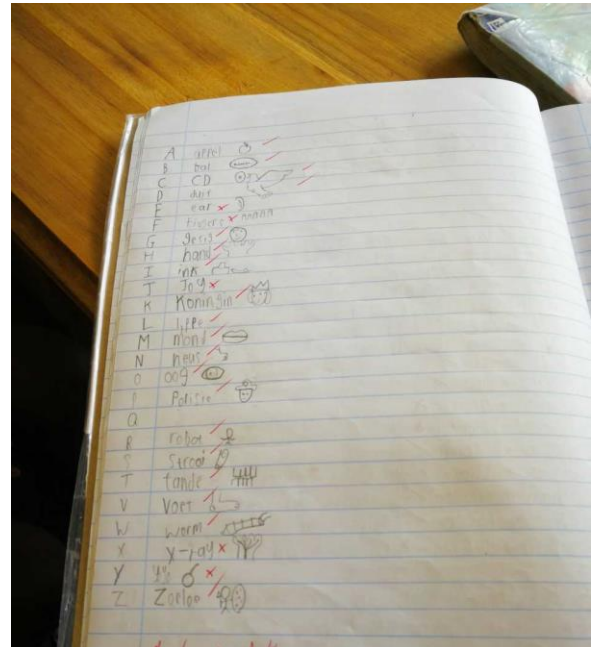 A appel
B bal
C CD
D duif
E ear
F fingers
G gesig
H hand
I ink
J Joy
K Koningin
L lippe
M mond
N neus
O oog
P Polisie
Q
R robot
S Strooi
T tande
V Voet
W worm
X X-ray
Y
Z Zoeloe